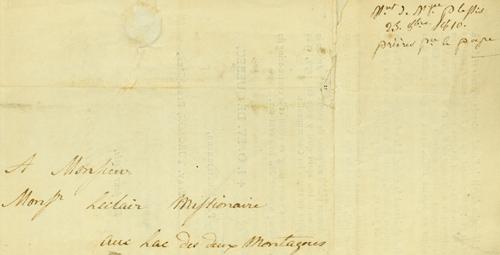 Mgr Plessis
23. 8bre. 1810.
prières pr. le pape
A Monsieur
Monsr. Leclair Missionaire
aux Lac des deux Montagnes